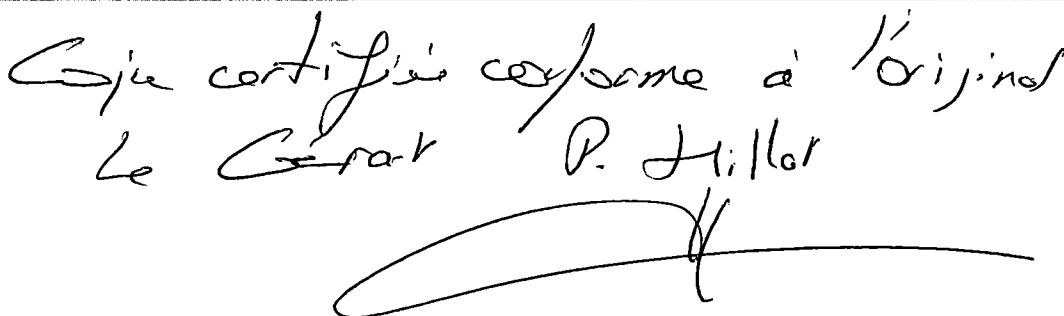 Copie certifiée conforme à l'original
Le Gérant P. Hillot